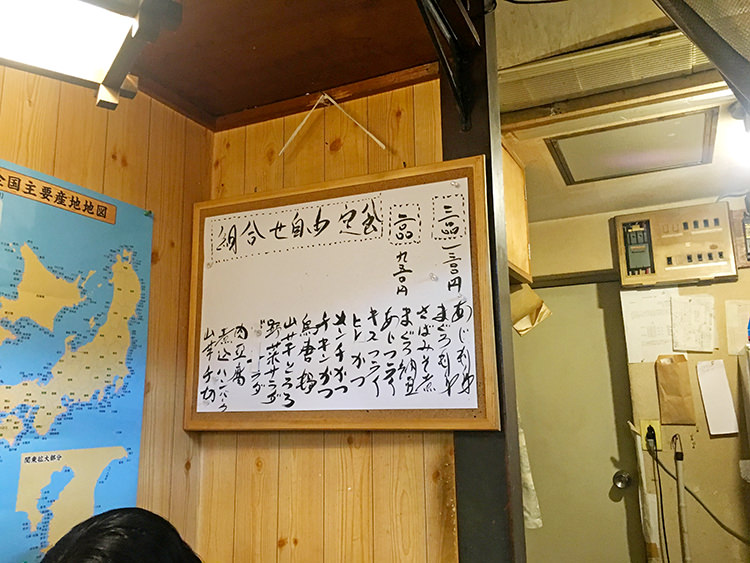 全国主要産地地図
関東拡大部分
組合せ自由定食
三品
二品 九五〇円
あじ刺身
まぐろ刺身
さばみそ煮
まぐろ納豆
あじフライ
キスフライ
ヒレかつ
メンチかつ
チキンかつ
鳥唐揚
山芋とろろ
野菜サラダ
肉豆腐
煮込ハンバーグ
山芋千切